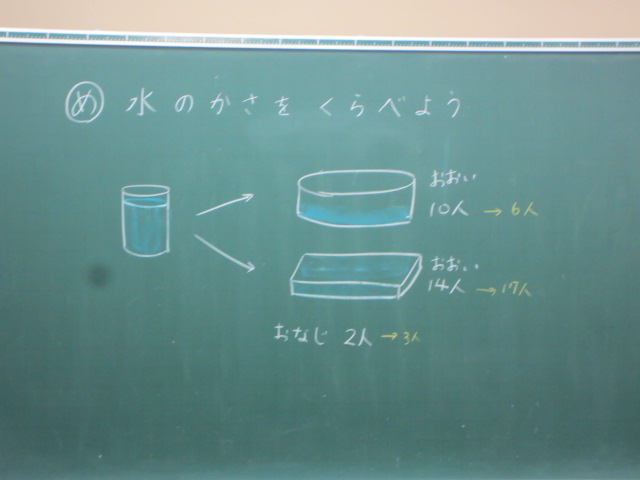 め 水のかさをくらべよう
おおい
10人 → 6人
おおい
14人 → 17人
おなじ 2人 → 3人